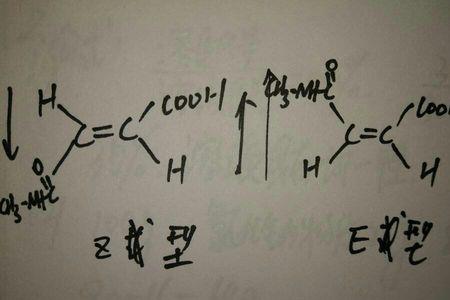 H
COOH
C=C
O
CH3-NHC
H
Z 型
O
CH3-NHC
COO
C=C
H
H
E 型